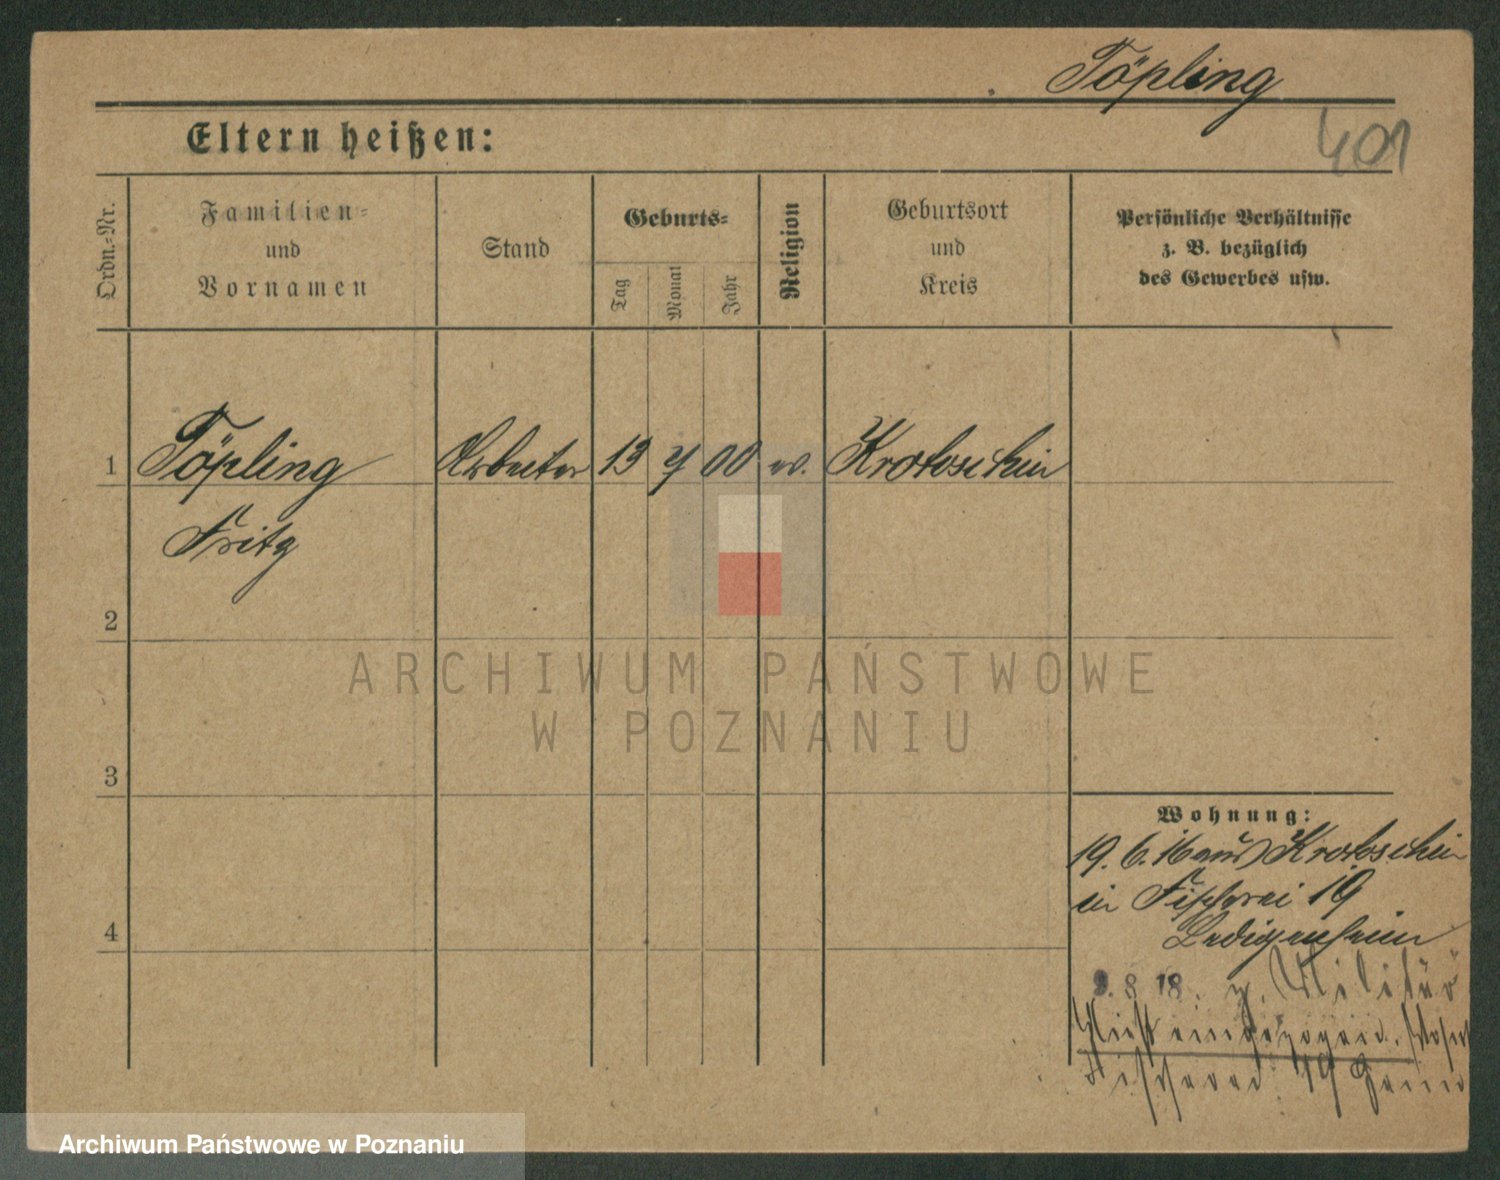 Töpling
401
Eltern heißen:
Ordn.-Nr.
Familien-
und
Vornamen
Stand
Geburts-
Tag
Monat
Jahr
Religion
Geburtsort
und
Kreis
Persönliche Verhältnisse
z. B. bezüglich
des Gewerbes usw.
1 Töpling Arbeiter 13 7 00 ev. Krotoschin
Fritz
2
3
4
Wohnung:
19. 6. 16 aus Krotoschin
in Fischerei 19
Ledigenheim
9. 8. 18. z. Militär
eingezogen.
Fischerei 19
ARCHIWUM PAŃSTWOWE
W POZNANIU
Archiwum Państwowe w Poznaniu